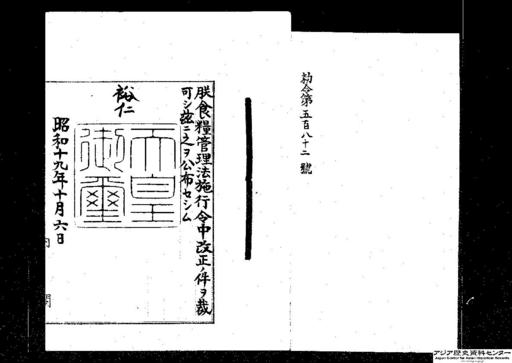 勅令第五百八十二號
朕食糧管理法施行令中改正ノ件ヲ裁
可シ茲ニ之ヲ公布セシム
裕仁
天皇
御璽
昭和十九年十月六日
内
閣
アジア歴史資料センター
Japan Center for Asian Historical Records